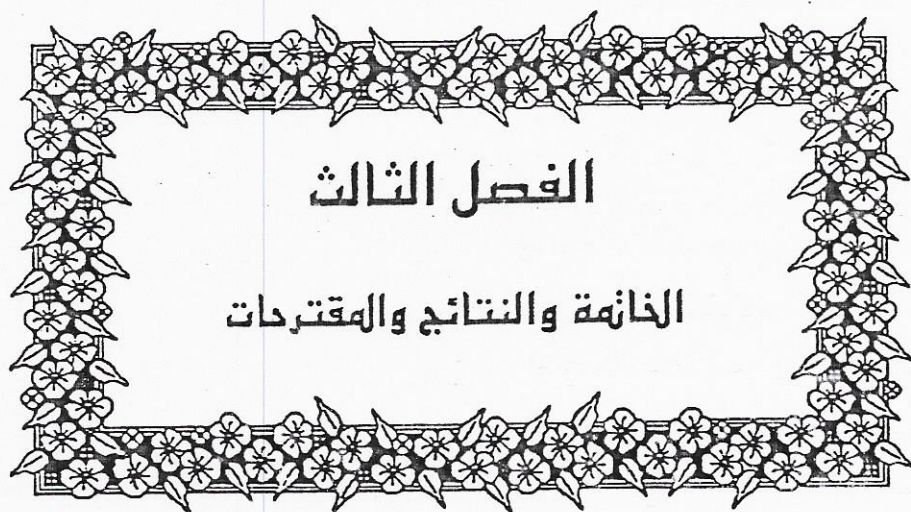 الفصل الثالث
الخاتمة والنتائج والمقترحات